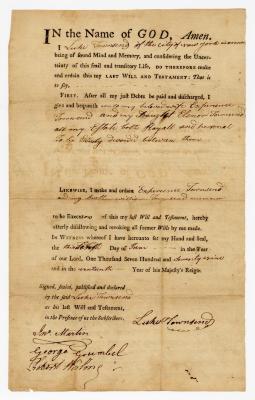 IN the Name of GOD, Amen.
I Luke Townsend of the City of New York
being of sound Mind and Memory, and considering the Uncer-
tainty of this frail and transitory Life, DO THEREFORE make
and ordain this my LAST WILL AND TESTAMENT: That is
to say,
FIRST, After all my just Debts be paid and discharged, I
give and bequeath unto my beloved wife Experience
Townsend and my Elenor Townsend
all my Estate both Reyall and personal
To be devided between them
LIKEWISE, I make and ordain Experience Townsend
to be EXECUTOR of this my last Will and Testament, hereby
utterly disallowing and revoking all former Wills by me made.
IN WITNESS whereof I have hereunto set my Hand and Seal,
the Day of June in the Year
of our Lord, One Thousand Seven Hundred and seventy nine
and in the nineteenth Year of his Majesty's Reign.
Signed, sealed, published and declared
by the said Luke Townsend
as his last Will and Testament,
in the Presence of us the Subscribers.
Luke Townsend
Martin
George Gumbel
Robert